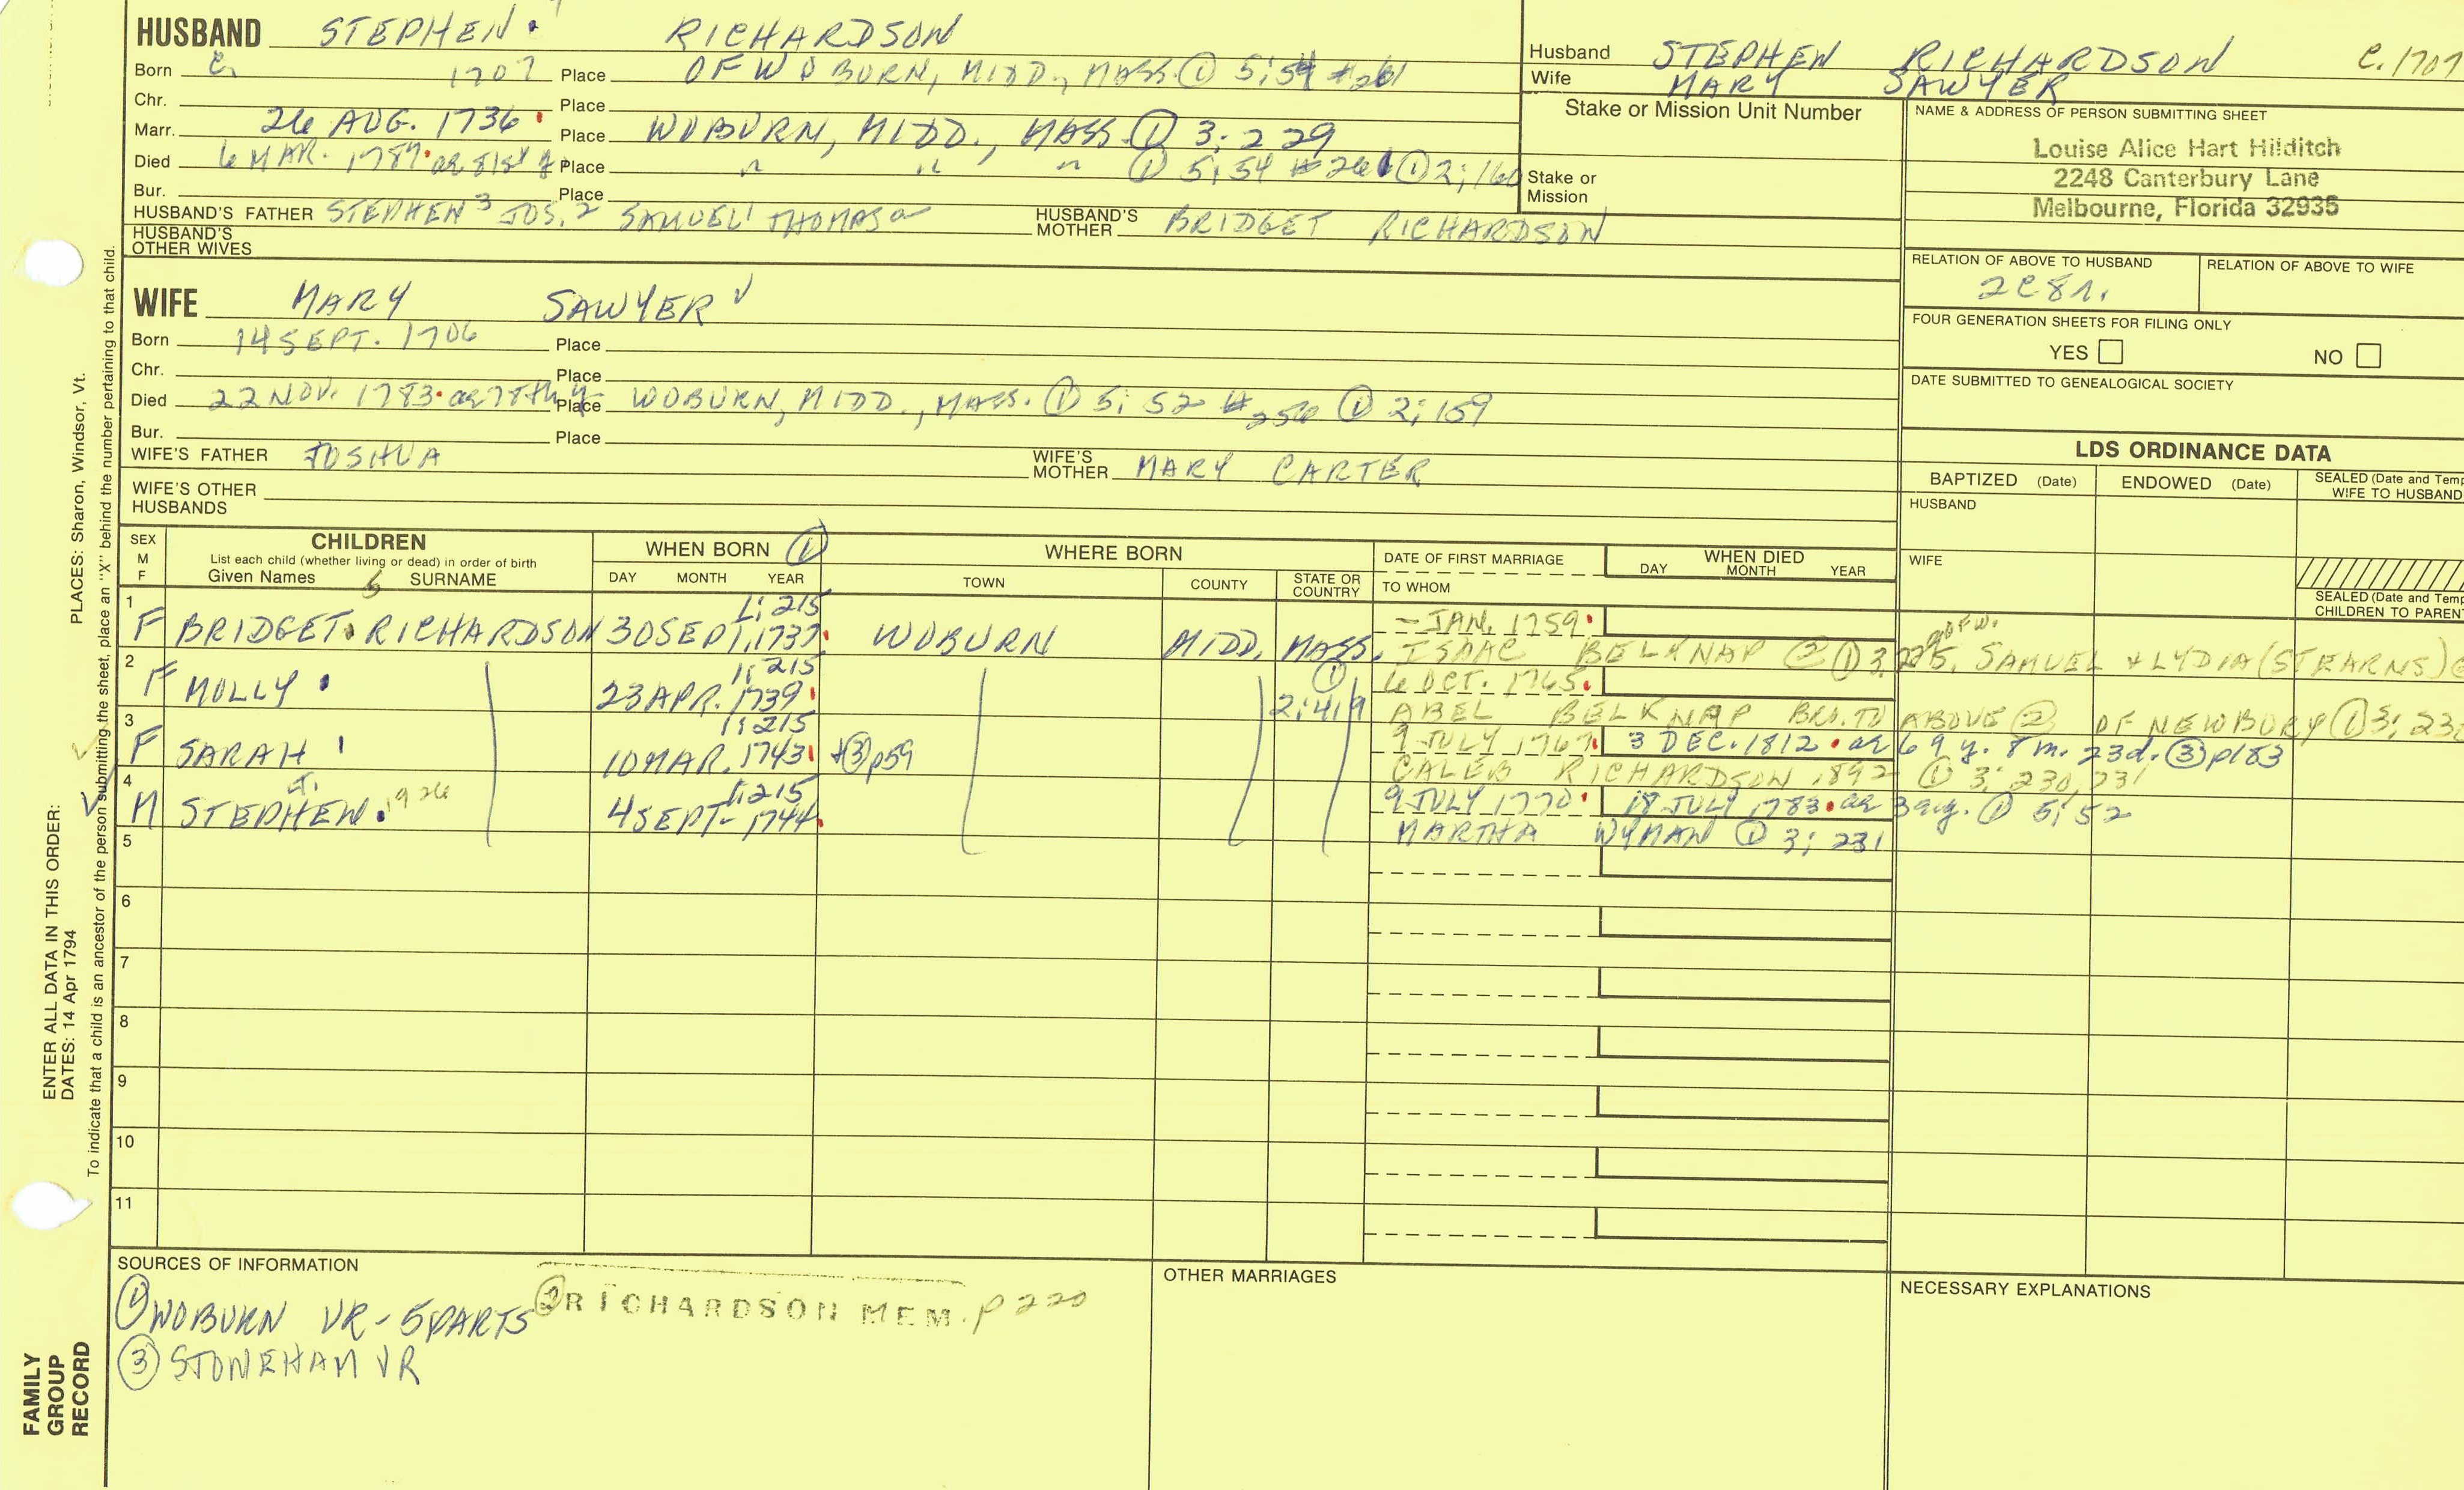 HUSBAND STEPHEN RICHARDSON
Born c. 1707 Place OF WOBURN, MIDD., MASS. ① 5; 54 #261
Chr. Place
Marr. 26 AUG. 1736 Place WOBURN, MIDD., MASS. ① 3; 229
Died 6 MAR. 1787 ae 81st y Place " " " ① 5; 54 #261 ① 2; 160
Bur. Place
HUSBAND'S FATHER STEPHEN 3 JOS. 2 SAMUEL 1 THOMAS a HUSBAND'S MOTHER BRIDGET RICHARDSON
HUSBAND'S OTHER WIVES
WIFE MARY SAWYER √
Born 14 SEPT. 1706 Place
Chr. Place
Died 22 NOV. 1783 ae 78th y Place WOBURN, MIDD., MASS. ① 5; 52 #256 ① 2; 159
Bur. Place
WIFE'S FATHER JOSHUA WIFE'S MOTHER MARY CARTER
WIFE'S OTHER HUSBANDS
Husband STEPHEN RICHARDSON c. 1707
Wife MARY SAWYER
Stake or Mission Unit Number
Stake or Mission
NAME & ADDRESS OF PERSON SUBMITTING SHEET
Louise Alice Hart Hilditch
2248 Canterbury Lane
Melbourne, Florida 32935
RELATION OF ABOVE TO HUSBAND RELATION OF ABOVE TO WIFE
2c8r.
FOUR GENERATION SHEETS FOR FILING ONLY
YES NO
DATE SUBMITTED TO GENEALOGICAL SOCIETY
LDS ORDINANCE DATA
BAPTIZED (Date) ENDOWED (Date) SEALED (Date and Temp WIFE TO HUSBAND
HUSBAND
WIFE
SEALED (Date and Temp CHILDREN TO PARENT
SEX M F
CHILDREN
List each child (whether living or dead) in order of birth
Given Names SURNAME
WHEN BORN ①
DAY MONTH YEAR
WHERE BORN
TOWN COUNTY STATE OR COUNTRY
DATE OF FIRST MARRIAGE
TO WHOM
WHEN DIED
DAY MONTH YEAR
1; 215 - JAN. 1759
1 F BRIDGET RICHARDSON 30 SEPT. 1737 WOBURN MIDD. MASS. ISAAC BELKNAP ② ① 3, SAMUEL + LYDIA (STEARNS)
1; 215 ① 6 OCT. 1765
2 F MOLLY 23 APR. 1739 2; 419 ABEL BELKNAP BRO. TO ABOVE ② OF NEWBURY ① 3; 23
1; 215 9 JULY 1767 3 DEC. 1812 ae 69 y. 8 m. 23 d. ③ p183
3 F SARAH 10 MAR. 1743 + ③ p59 CALEB RICHARDSON 1892 ① 3; 230, 231
1; 215 9 JULY 1770 18 JULY 1783 ae 39 y. ① 5; 52
4 M STEPHEN 1926 4 SEPT. 1744 MARTHA WYMAN ① 3; 231
5
6
7
8
9
10
11
SOURCES OF INFORMATION
① WOBURN VR - 5 PARTS ② RICHARDSON MEM. p 220
③ STONEHAM VR
OTHER MARRIAGES
NECESSARY EXPLANATIONS
ENTER ALL DATA IN THIS ORDER:
DATES: 14 Apr 1794
PLACES: Sharon, Windsor, Vt.
To indicate that a child is an ancestor of the person submitting the sheet, place an "X" behind the number pertaining to that child.
FAMILY
GROUP
RECORD